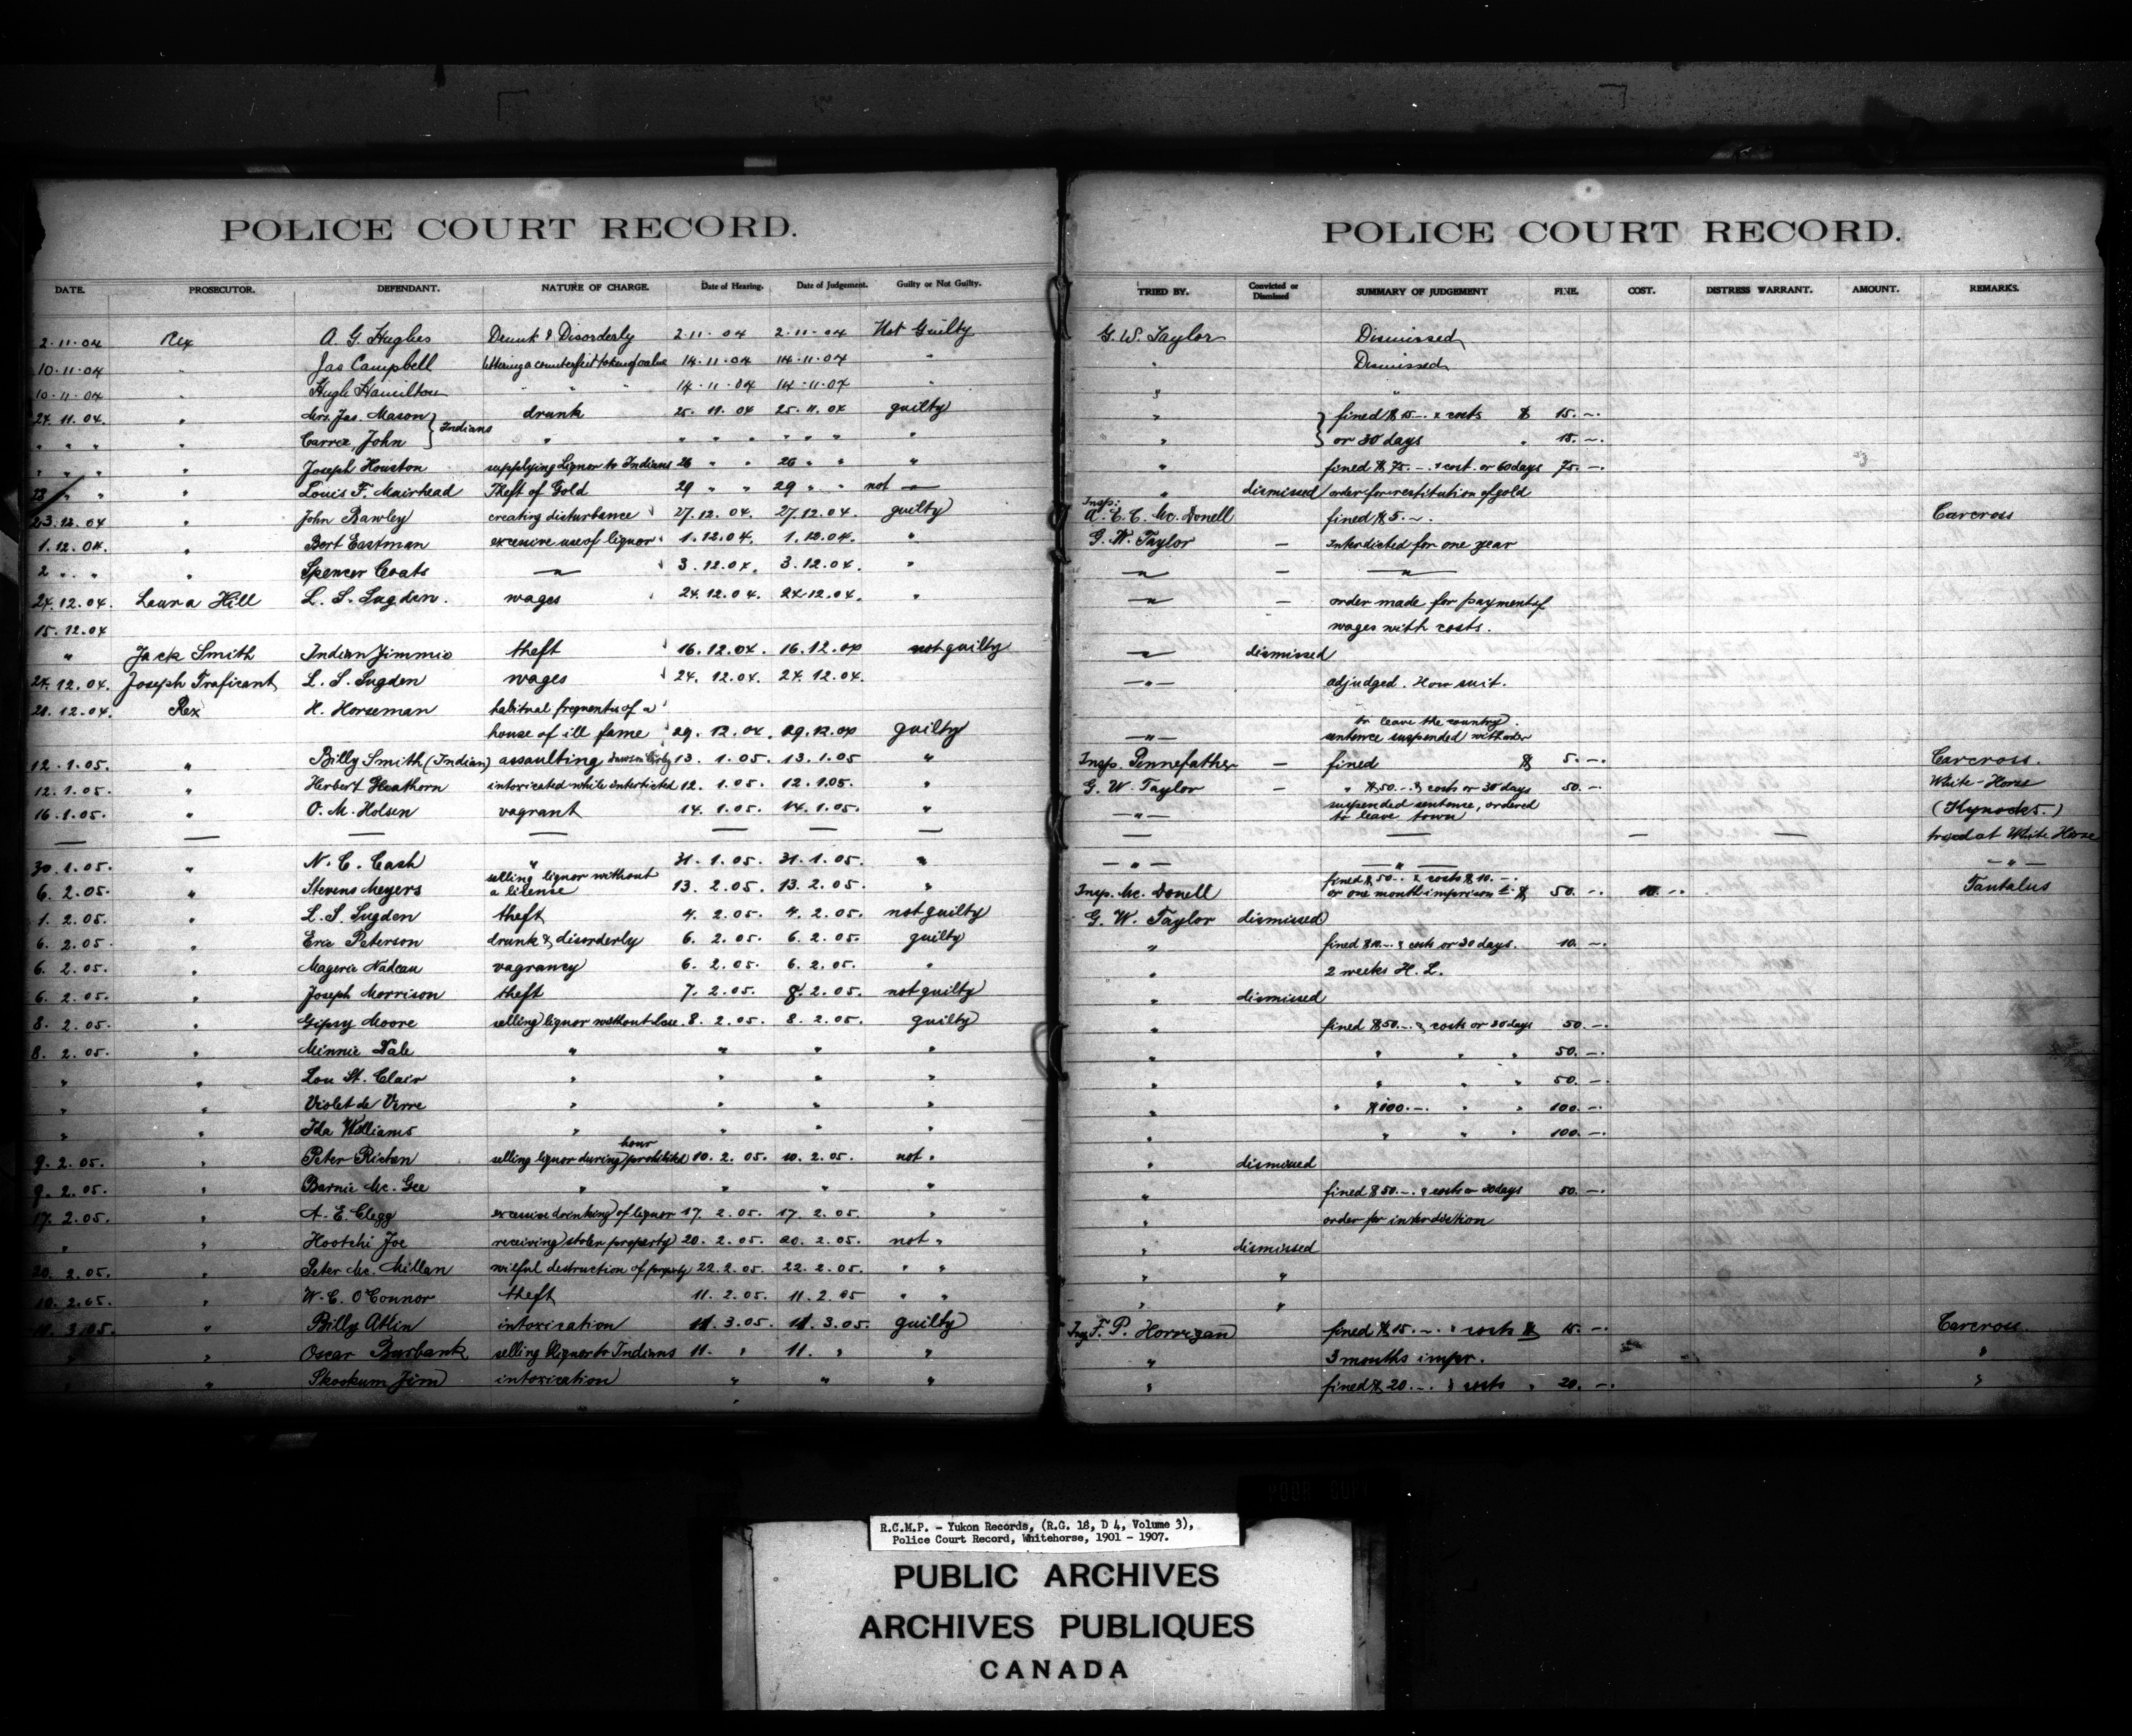 POLICE COURT RECORD.
DATE. PROSECUTOR. DEFENDANT. NATURE OF CHARGE. Date of Hearing. Date of Judgement. Guilty or Not Guilty.
2.11.04 Rex A. G. Hughes Drunk & Disorderly 2.11.04 2.11.04 Not Guilty
10.11.04 " Jas Campbell Uttering a counterfeit token of value 14.11.04 14.11.04 "
10.11.04 " Hugh Hamilton " " " 14.11.04 14.11.04 "
24.11.04. " Mrs. Jas. Mason } Indians drunk 25.11.04 25.11.04 guilty
" " " " John " " " " " " " "
" " " " Joseph Houston supplying Liquor to Indians 26 " " 26 " " "
28 " " " Louis F. Muirhead Theft of Gold 29 " " 29 " " not —"—
23.12.04 " John Bawley creating disturbance 27.12.04. 27.12.04. guilty
1.12.04. " Bert Eastman excessive use of liquor 1.12.04. 1.12.04. "
2 " " " Spencer Coats —"— 3.12.04. 3.12.04. "
24.12.04. Laura Hill L. S. Sugden. wages 24.12.04. 24.12.04. "
15.12.04
" Jack Smith Indian Jimmie theft 16.12.04. 16.12.04 not guilty
24.12.04. Joseph Traficant L. S. Sugden wages 24.12.04. 24.12.04.
28.12.04. Rex H. Horseman habitual frequenter of a
house of ill fame 29.12.04. 29.12.04 guilty
12.1.05. " Billy Smith (Indian) assaulting 13.1.05. 13.1.05 "
12.1.05. " Herbert Heathorn intoxicated while interdicted 12.1.05. 12.1.05. "
16.1.05. " O. M. Holsen vagrant 14.1.05. 14.1.05. "
— — — — — — —
30.1.05. " N. C. Cash " 31.1.05. 31.1.05. "
6.2.05. " Stevens Meyers selling liquor without a license 13.2.05. 13.2.05. "
1.2.05. " L. S. Sugden theft 4.2.05. 4.2.05. not guilty
6.2.05. " Eric Peterson drunk & disorderly 6.2.05. 6.2.05. guilty
6.2.05. " Magerie Nadeau vagrancy 6.2.05. 6.2.05. "
6.2.05. " Joseph Morrison theft 7.2.05. 8.2.05. not guilty
8.2.05. " Gipsy Moore selling liquor without 8.2.05. 8.2.05. guilty
8.2.05. " Minnie Dale " " " "
" " Lou St. Clair " " " "
" " Violet de Verre " " " "
" " Ida Williams " " " "
9.2.05. " Peter selling liquor during prohibited hour 10.2.05. 10.2.05. not "
9.2.05. " Barnie Mc. Gee " " " "
17.2.05. " A. E. Clegg excessive drinking of liquor 17.2.05. 17.2.05. "
" " Hootchi Joe receiving stolen property 20.2.05. 20.2.05. not "
20.2.05. " Peter Mc. Millan wilful destruction of property 22.2.05. 22.2.05. " "
10.2.05. " W. C. O'Connor theft 11.2.05. 11.2.05 " "
11.3.05. " Billy Atlin intoxication 11.3.05. 11.3.05. guilty
" " Oscar Burbank selling liquor to Indians 11. " 11. " "
" " Skookum Jim intoxication " " "
POLICE COURT RECORD.
TRIED BY. Convicted or Dismissed SUMMARY OF JUDGEMENT FINE. COST. DISTRESS WARRANT. AMOUNT. REMARKS.
G. W. Taylor Dismissed
" Dismissed
" "
" } fined $15.–. & costs $ 15.–.
" } or 30 days " 15.–.
" fined $75.–. & cost. or 60 days 75.–.
" dismissed order for restitution of gold
Insp. A. E. C. Mc. Donell fined $5.–. Carcross
G. W. Taylor – Interdicted for one year
—"— – —"—
—"— – order made for payment of
wages with costs.
—"— dismissed
—"— adjudged. suit.
to leave the country.
—"— sentence suspended with order
Insp. Pennefather – fined $ 5.–. Carcross.
G. W. Taylor – " $50.–. & costs or 30 days 50.–. White-Horse
—"— suspended sentence, ordered to leave town
— — — — tried at White Horse
—"— —"— —"—
Insp. Mc. Donell fined $50.–. & costs $10.–. or one month imprisonmt. $ 50.–. 10.–. Tantalus
G. W. Taylor dismissed
" fined $10.–. & costs or 30 days. 10.–.
" 2 weeks H. L.
" dismissed
" fined $50.–. & costs or 30 days 50.–.
" " " " 50.–.
" " " " 50.–.
" " $100.–. " " 100.–.
" " " " 100.–.
" dismissed
" fined $50.–. & costs or 30 days 50.–.
" order for interdiction
" dismissed
" "
" "
Insp F. P. Horrigan fined $15.–. & costs $ 15.–. Carcross.
" 3 months impr. "
" fined $20.–. & costs " 20.–. "
POOR COPY
R.C.M.P. - Yukon Records, (R.G. 18, D 4, Volume 3),
Police Court Record, Whitehorse, 1901 - 1907.
PUBLIC ARCHIVES
ARCHIVES PUBLIQUES
CANADA